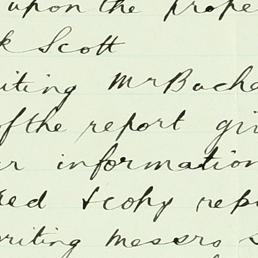 upon the prope
k Scott
iting Mr Bache
of the report gi
r information
ed & copy rep
writing Messrs S